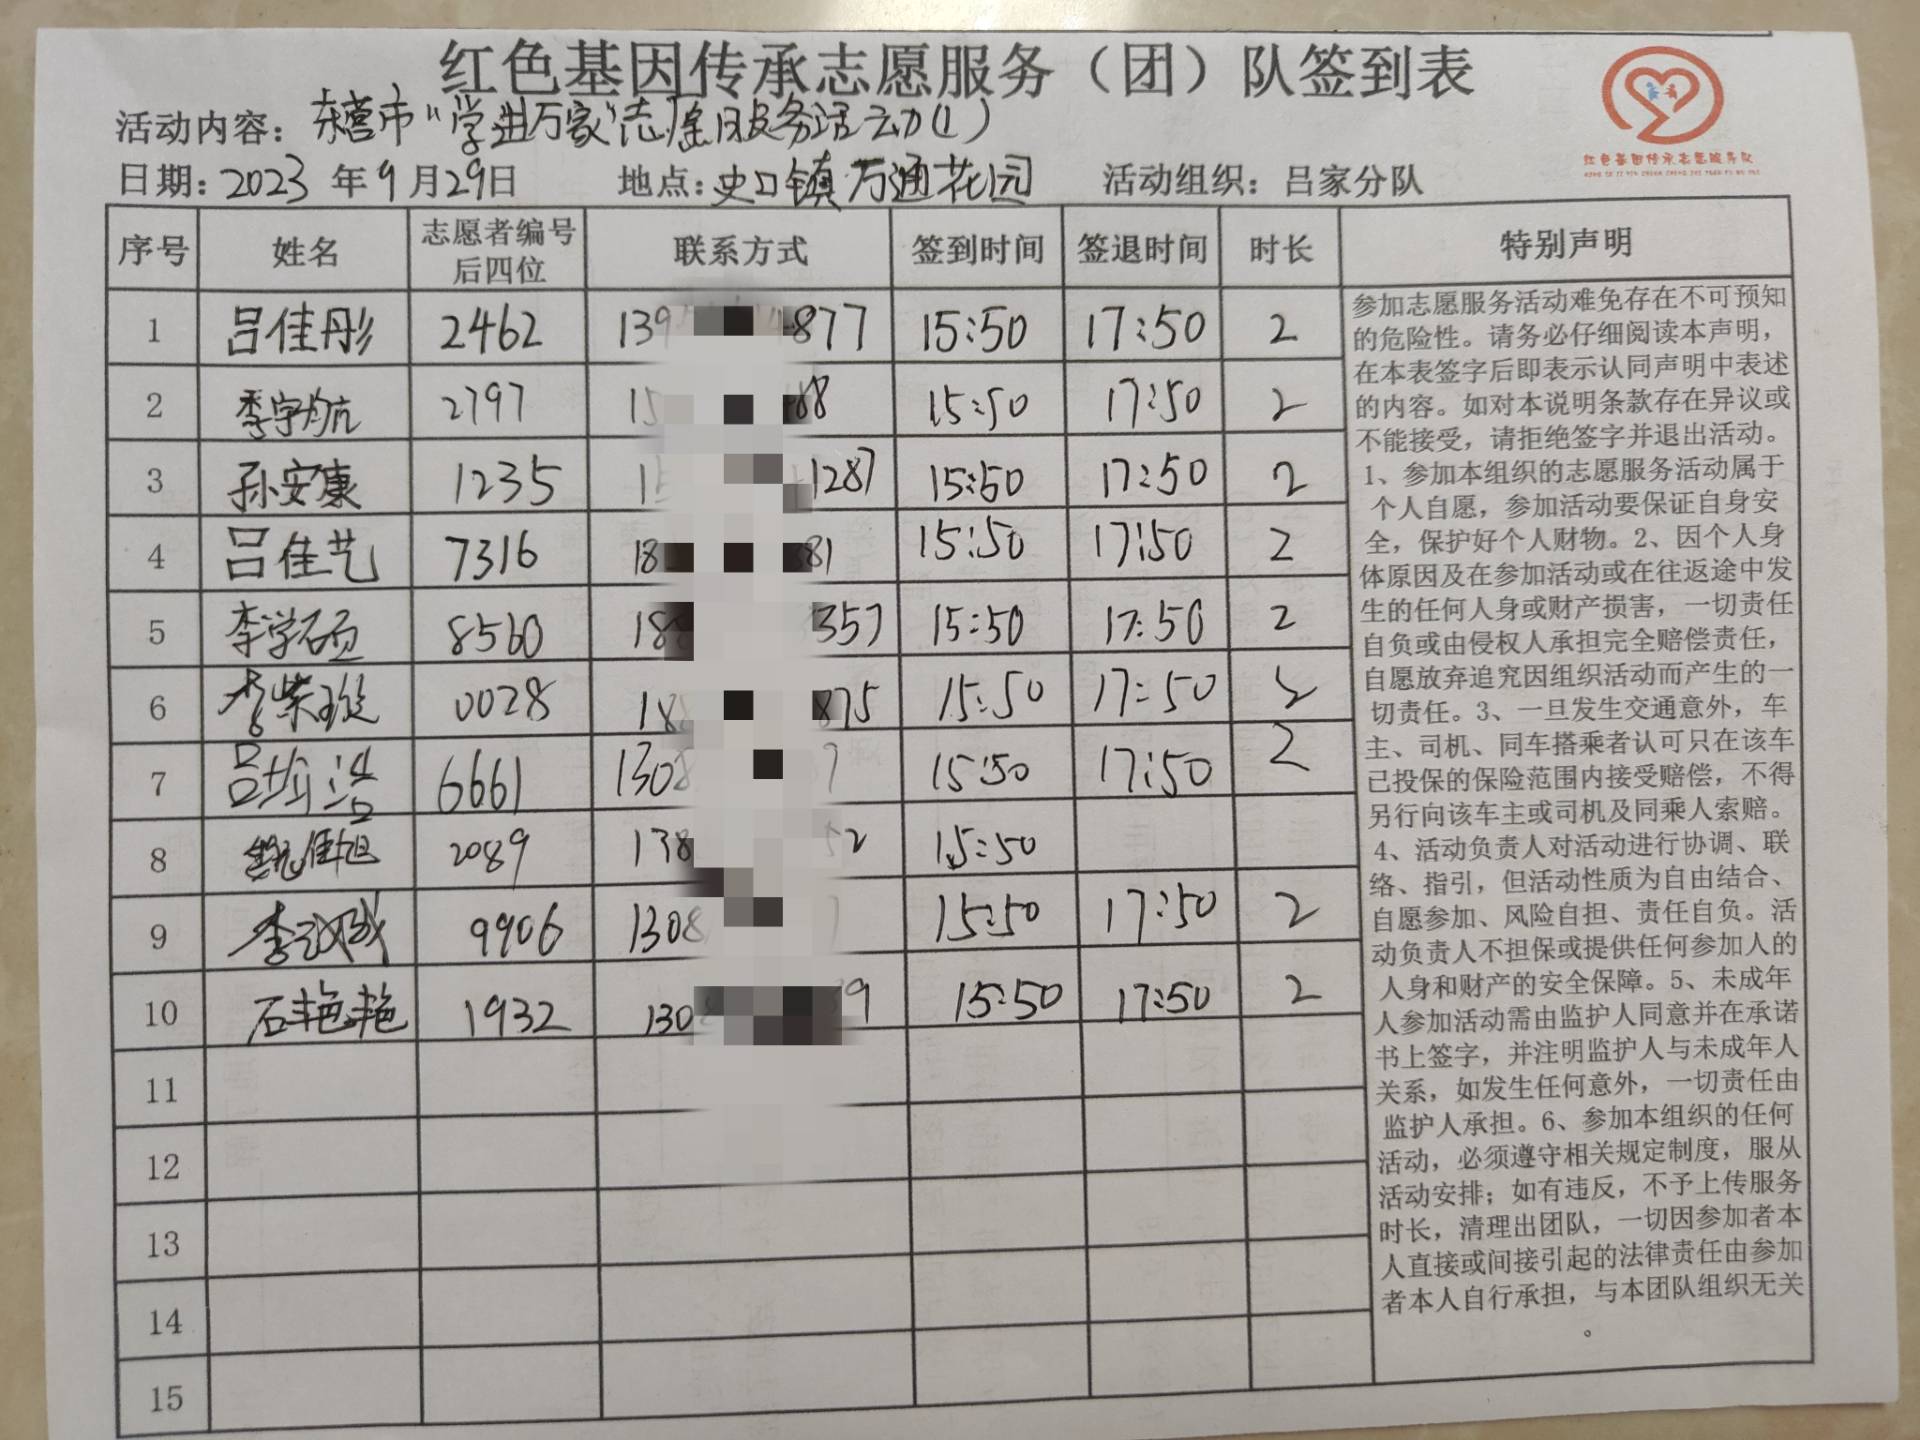 红色基因传承志愿服务（团）队签到表
活动内容：东营市“学进万家”志愿服务活动(1)
日期：2023年9月29日 地点：史口镇万通花园 活动组织：吕家分队
红色基因传承志愿服务队
序号 姓名 志愿者编号后四位 联系方式 签到时间 签退时间 时长 特别声明
1 吕佳彤 2462 139 4877 15:50 17:50 2
2 季宇航 2797 15 88 15:50 17:50 2
3 孙安康 1235 1 1287 15:50 17:50 2
4 吕佳艺 7316 18 81 15:50 17:50 2
5 李学硕 8560 18 357 15:50 17:50 2
6 李紫璇 0028 18 875 15:50 17:50 2
7 吕 浩 6661 1308 7 15:50 17:50 2
8 2089 138 2 15:50
9 李 9906 1308 15:50 17:50 2
10 石艳艳 1932 130 39 15:50 17:50 2
11
12
13
14
15
参加志愿服务活动难免存在不可预知
的危险性。请务必仔细阅读本声明，
在本表签字后即表示认同声明中表述
的内容。如对本说明条款存在异议或
不能接受，请拒绝签字并退出活动。
1、参加本组织的志愿服务活动属于
个人自愿，参加活动要保证自身安
全，保护好个人财物。2、因个人身
体原因及在参加活动或在往返途中发
生的任何人身或财产损害，一切责任
自负或由侵权人承担完全赔偿责任，
自愿放弃追究因组织活动而产生的一
切责任。3、一旦发生交通意外，车
主、司机、同车搭乘者认可只在该车
已投保的保险范围内接受赔偿，不得
另行向该车主或司机及同乘人索赔。
4、活动负责人对活动进行协调、联
络、指引，但活动性质为自由结合、
自愿参加、风险自担、责任自负。活
动负责人不担保或提供任何参加人的
人身和财产的安全保障。5、未成年
人参加活动需由监护人同意并在承诺
书上签字，并注明监护人与未成年人
关系，如发生任何意外，一切责任由
监护人承担。6、参加本组织的任何
活动，必须遵守相关规定制度，服从
活动安排；如有违反，不予上传服务
时长，清理出团队，一切因参加者本
人直接或间接引起的法律责任由参加
者本人自行承担，与本团队组织无关
。